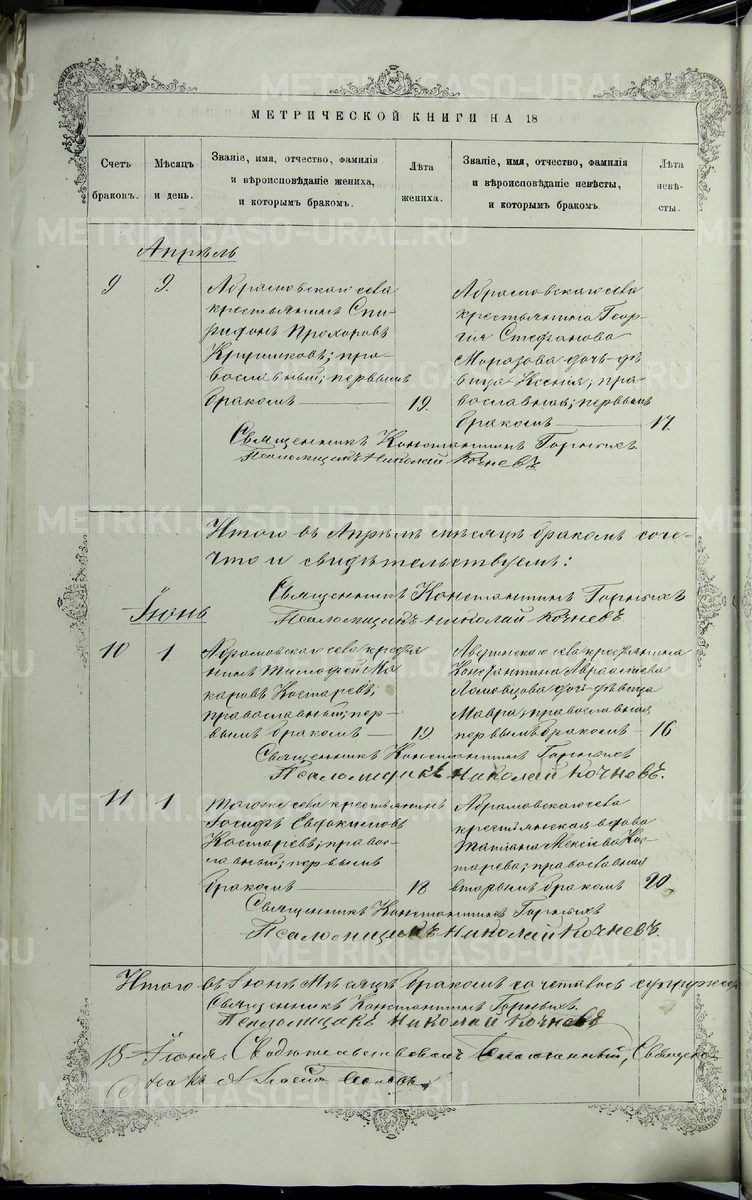 METRIKI.GASO-URAL.RU
МЕТРИЧЕСКОЙ КНИГИ НА 18
Счетъ
браковъ.
Мѣсяцъ
и день.
Званіе, имя, отчество, фамилія
и вѣроисповѣданіе жениха,
и которымъ бракомъ.
Лѣта
жениха.
Званіе, имя, отчество, фамилія
и вѣроисповѣданіе невѣсты,
и которымъ бракомъ
Лѣта
невѣ-
сты.
Апрѣль
9
9.
Абрамовскаго села
крестьянинъ Спи-
ридонъ Прохоровъ
православный; первымъ
бракомъ
19.
Абрамовскаго села
крестьянина Геор-
гія Стефанова
Морозова дочь дѣ-
вица Ксенія, пра-
вославная; первымъ
бракомъ
17.
Священникъ Константинъ Горныхъ
Псаломщикъ Николай Кочневъ
Итого въ Апрѣлѣ мѣсяцѣ бракомъ соче-
что и свидѣтельствуемъ:
Священникъ Константинъ Горныхъ
Псаломщикъ Николай Кочневъ
Іюнь
10
1.
Абрамовскаго села крестья
нинъ Тимофей Ма
каровъ Костаревъ;
православный; пер-
вымъ бракомъ
19
села крестьянина
Константина
дочь дѣвица
Мавра; православная
первымъ бракомъ
16
Священникъ Константинъ Горныхъ
Псаломщикъ Николай Кочневъ.
11
1
Тогоже села крестьянинъ
Іосифъ Евдокимовъ
Костаревъ; правос-
лавный; первымъ
бракомъ
18
Абрамовскаго села
крестьянская вдова
Татіана Алексіева Кос
тарева; православная
вторымъ бракомъ
20.
Священникъ Константинъ Горныхъ
Псаломщикъ Николай Кочневъ.
Итого въ Іюнѣ Мѣсяцѣ бракомъ сочеталось супружес
Священникъ Константинъ Горныхъ
Псаломщикъ Николай Кочневъ
15 Іюня, Свидѣтельствовалъ Благочинный, Священ
никъ